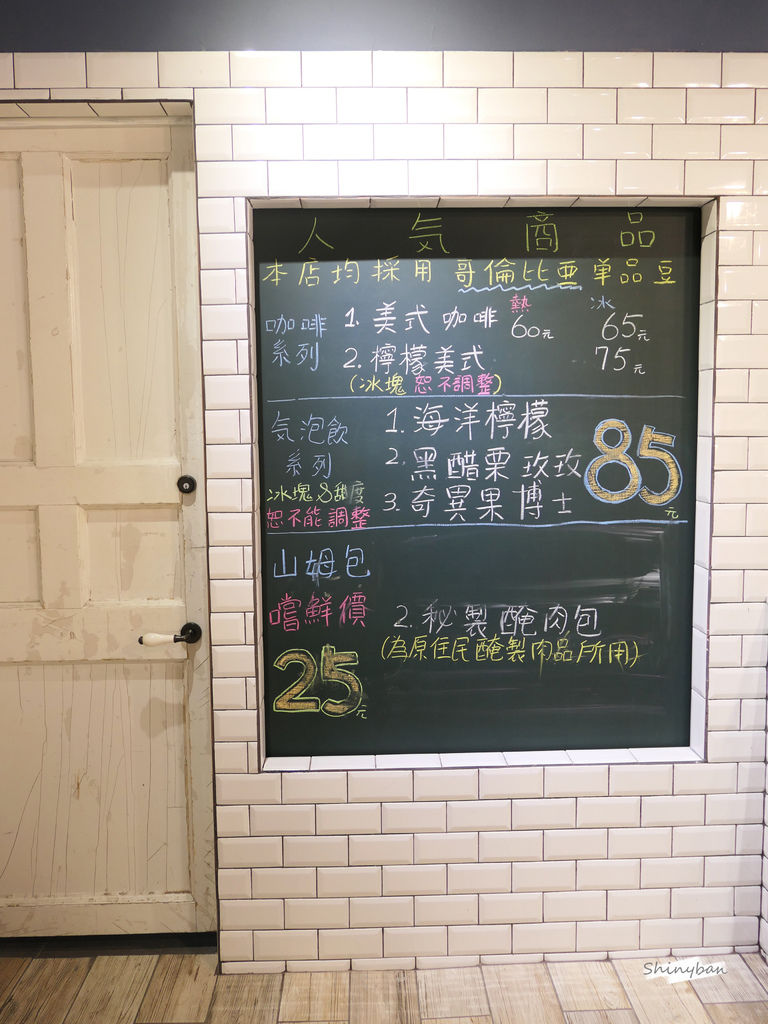 人気商品
本店均採用哥倫比亞單品豆
熱 冰
咖啡系列
1. 美式咖啡 60元 65元
2. 檸檬美式 75元
(冰塊恕不調整)
気泡飲系列
冰塊&甜度
恕不能調整
1. 海洋檸檬
2. 黑醋栗玫玫
3. 奇異果博士
85元
山姆包
嚐鮮價
25元
2. 秘製醃肉包
(為原住民醃製肉品所用)
Shinyban